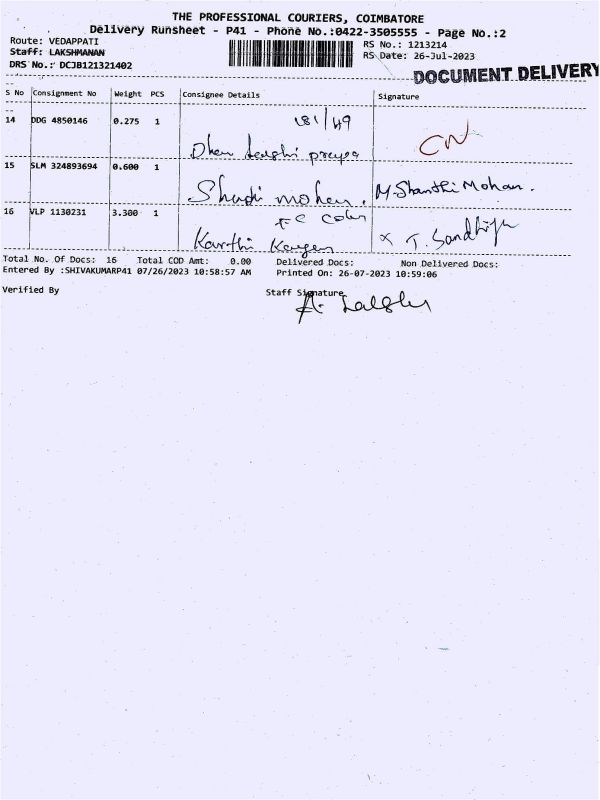 THE PROFESSIONAL COURIERS, COIMBATORE
Delivery Runsheet - P41 - Phone No.:0422-3505555 - Page No.:2
Route: VEDAPPATI
RS No.: 1213214
Staff: LAKSHMANAN
RS Date: 26-Jul-2023
DRS No.: DCJB121321402
DOCUMENT DELIVERY
S No Consignment No Weight PCS Consignee Details Signature
181/49
14 DDG 4850146 0.275 1
CN
15 SLM 324893694 0.600 1
mohan. M. Shanthi Mohan.
16 VLP 1130231 3.300 1
Karthi x T. Sandhiya
Total No. Of Docs: 16 Total COD Amt: 0.00 Delivered Docs: Non Delivered Docs:
Entered By :SHIVAKUMARP41 07/26/2023 10:58:57 AM Printed On: 26-07-2023 10:59:06
Verified By Staff Signature